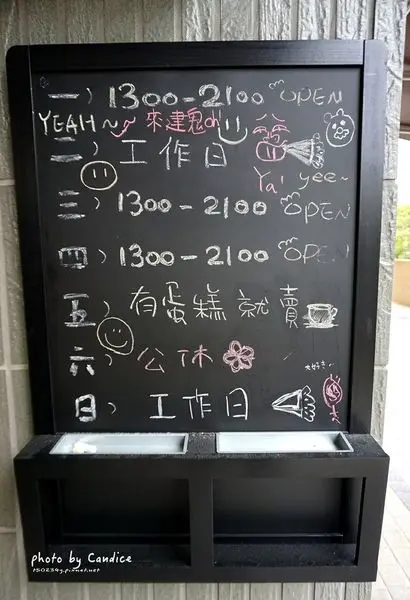 一) 1300-2100 OPEN
YEAH~ 來建鬼oh
二) 工作日
Ya! yee~
三) 1300-2100 OPEN
四) 1300-2100 OPEN
五) 有蛋糕就賣
六) 公休
日) 工作日
photo by Candice
t50234g.pixnet.net